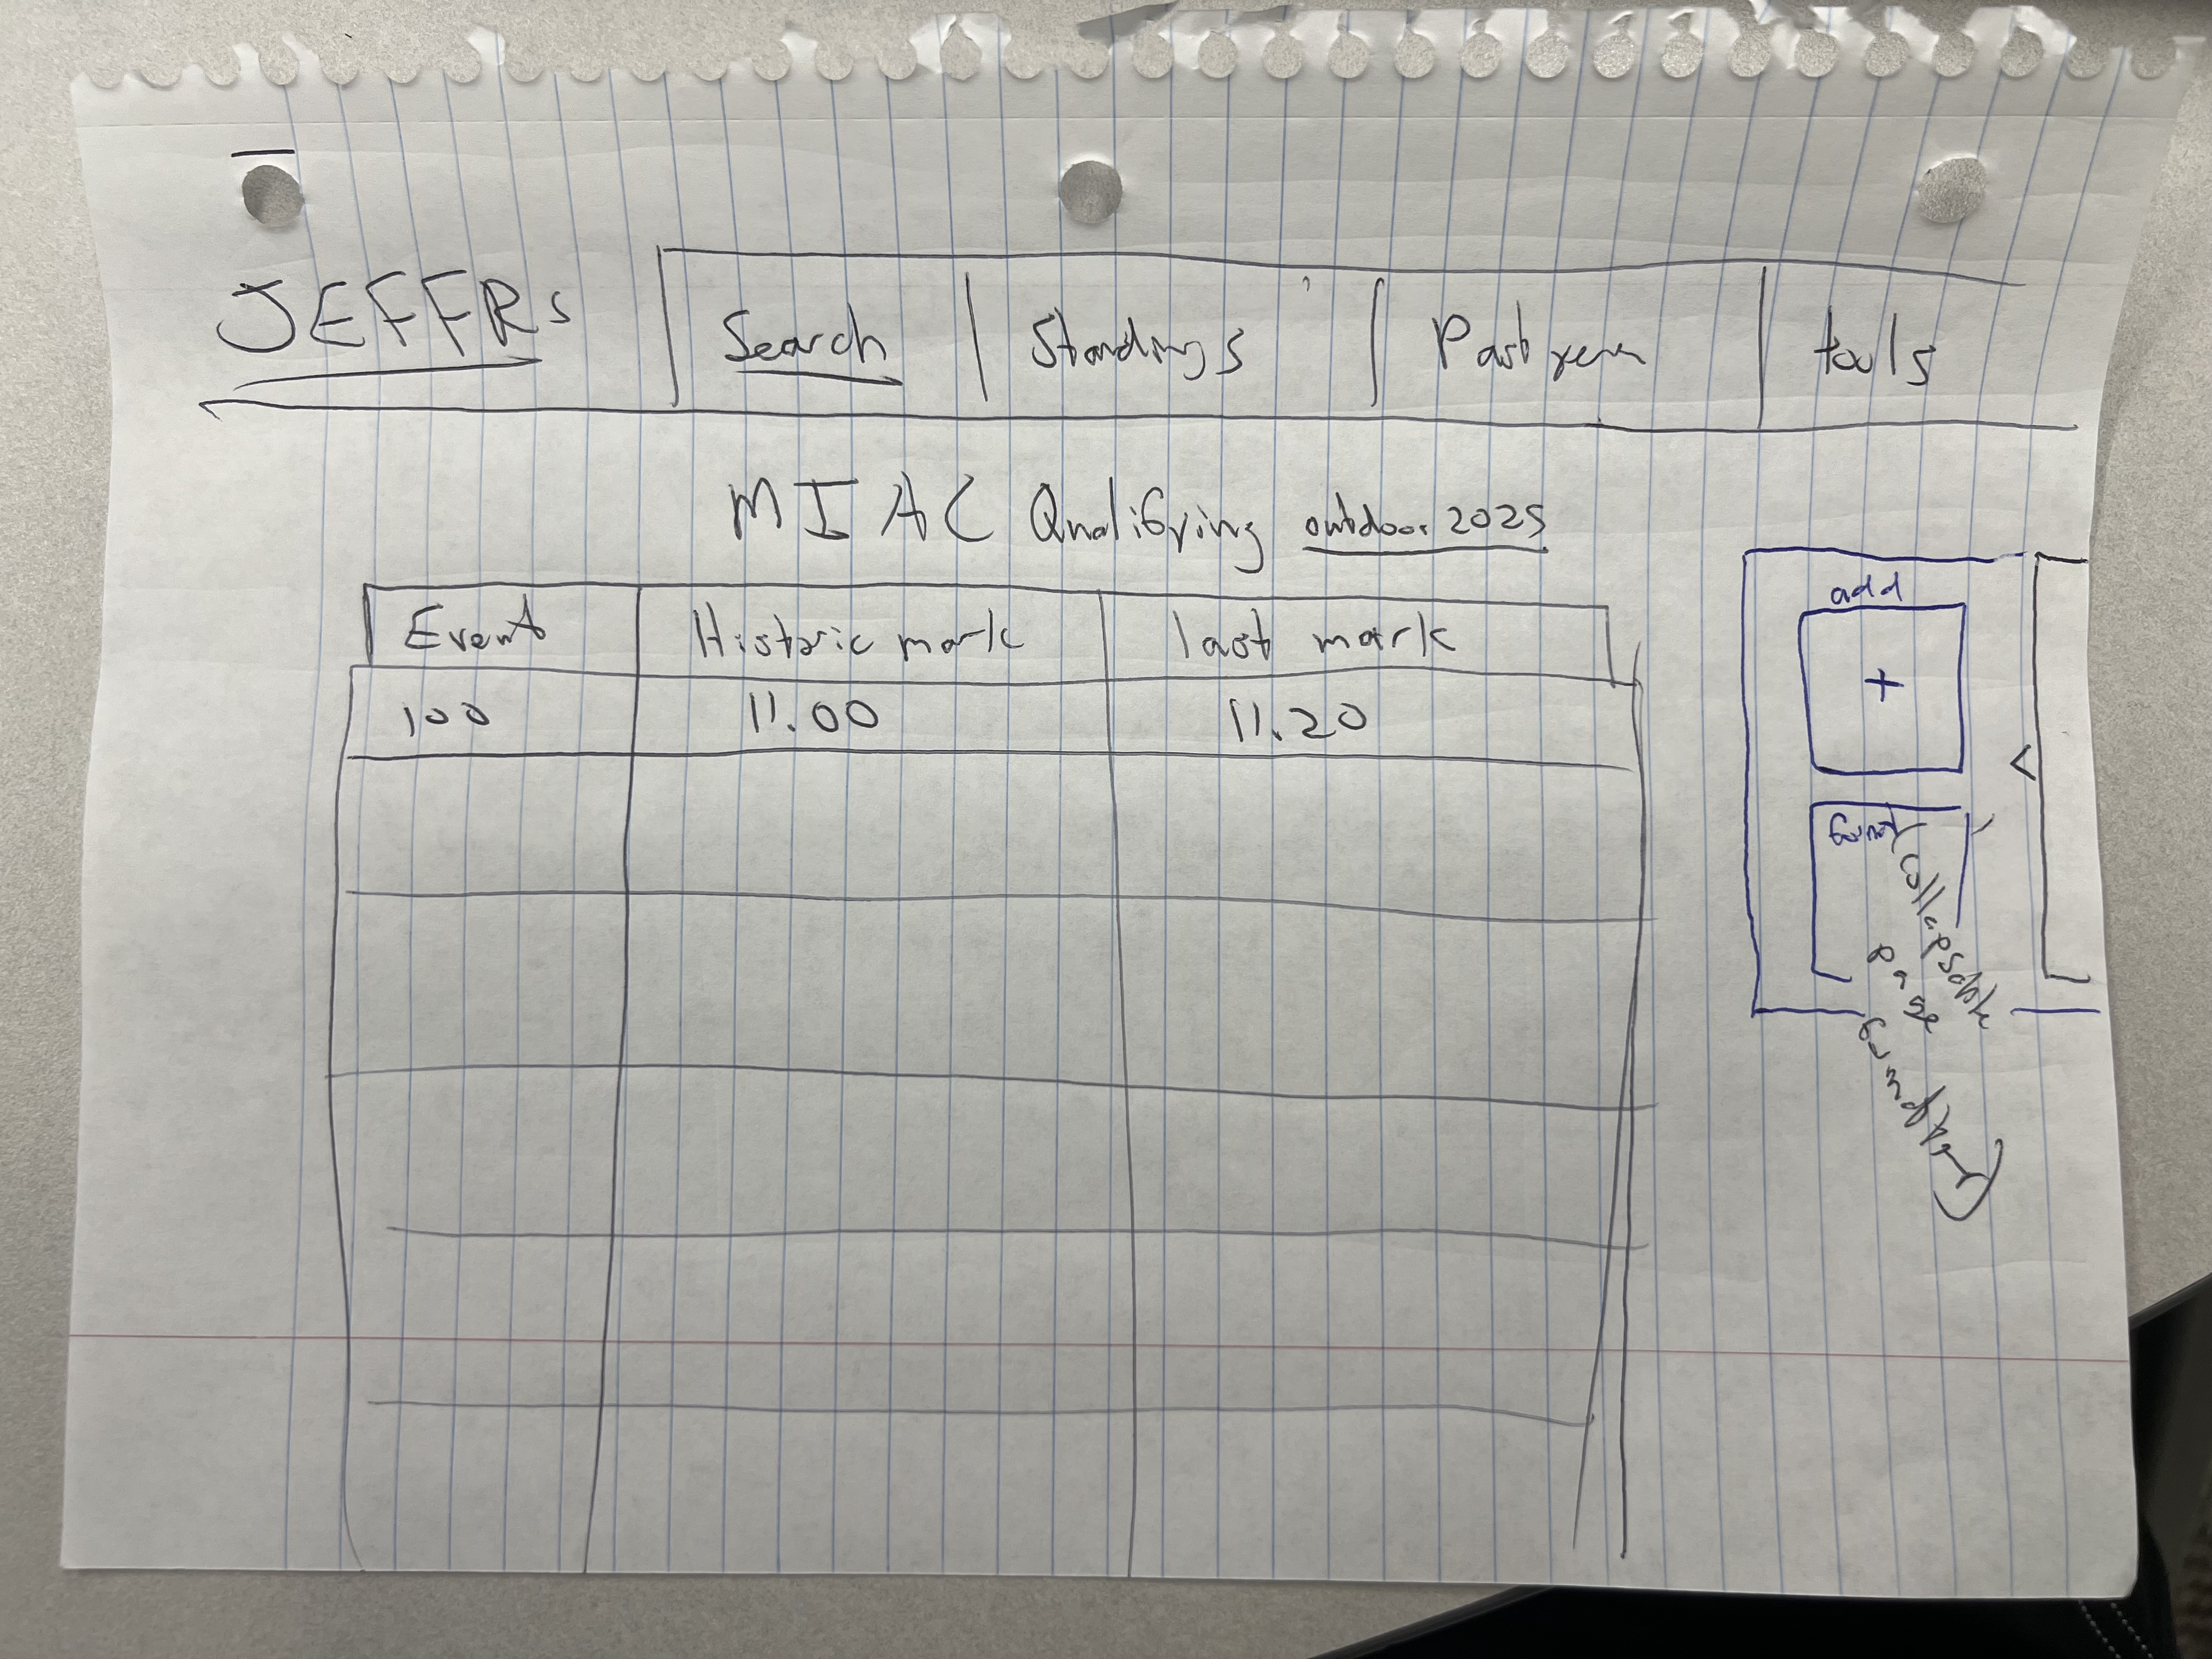 JEFFRs
Search | Standings | Past year | tools
MIAC Qualifying outdoor 2025
Event Historic mark last mark
100 11.00 11.20
add
+
<
(collapsable
page